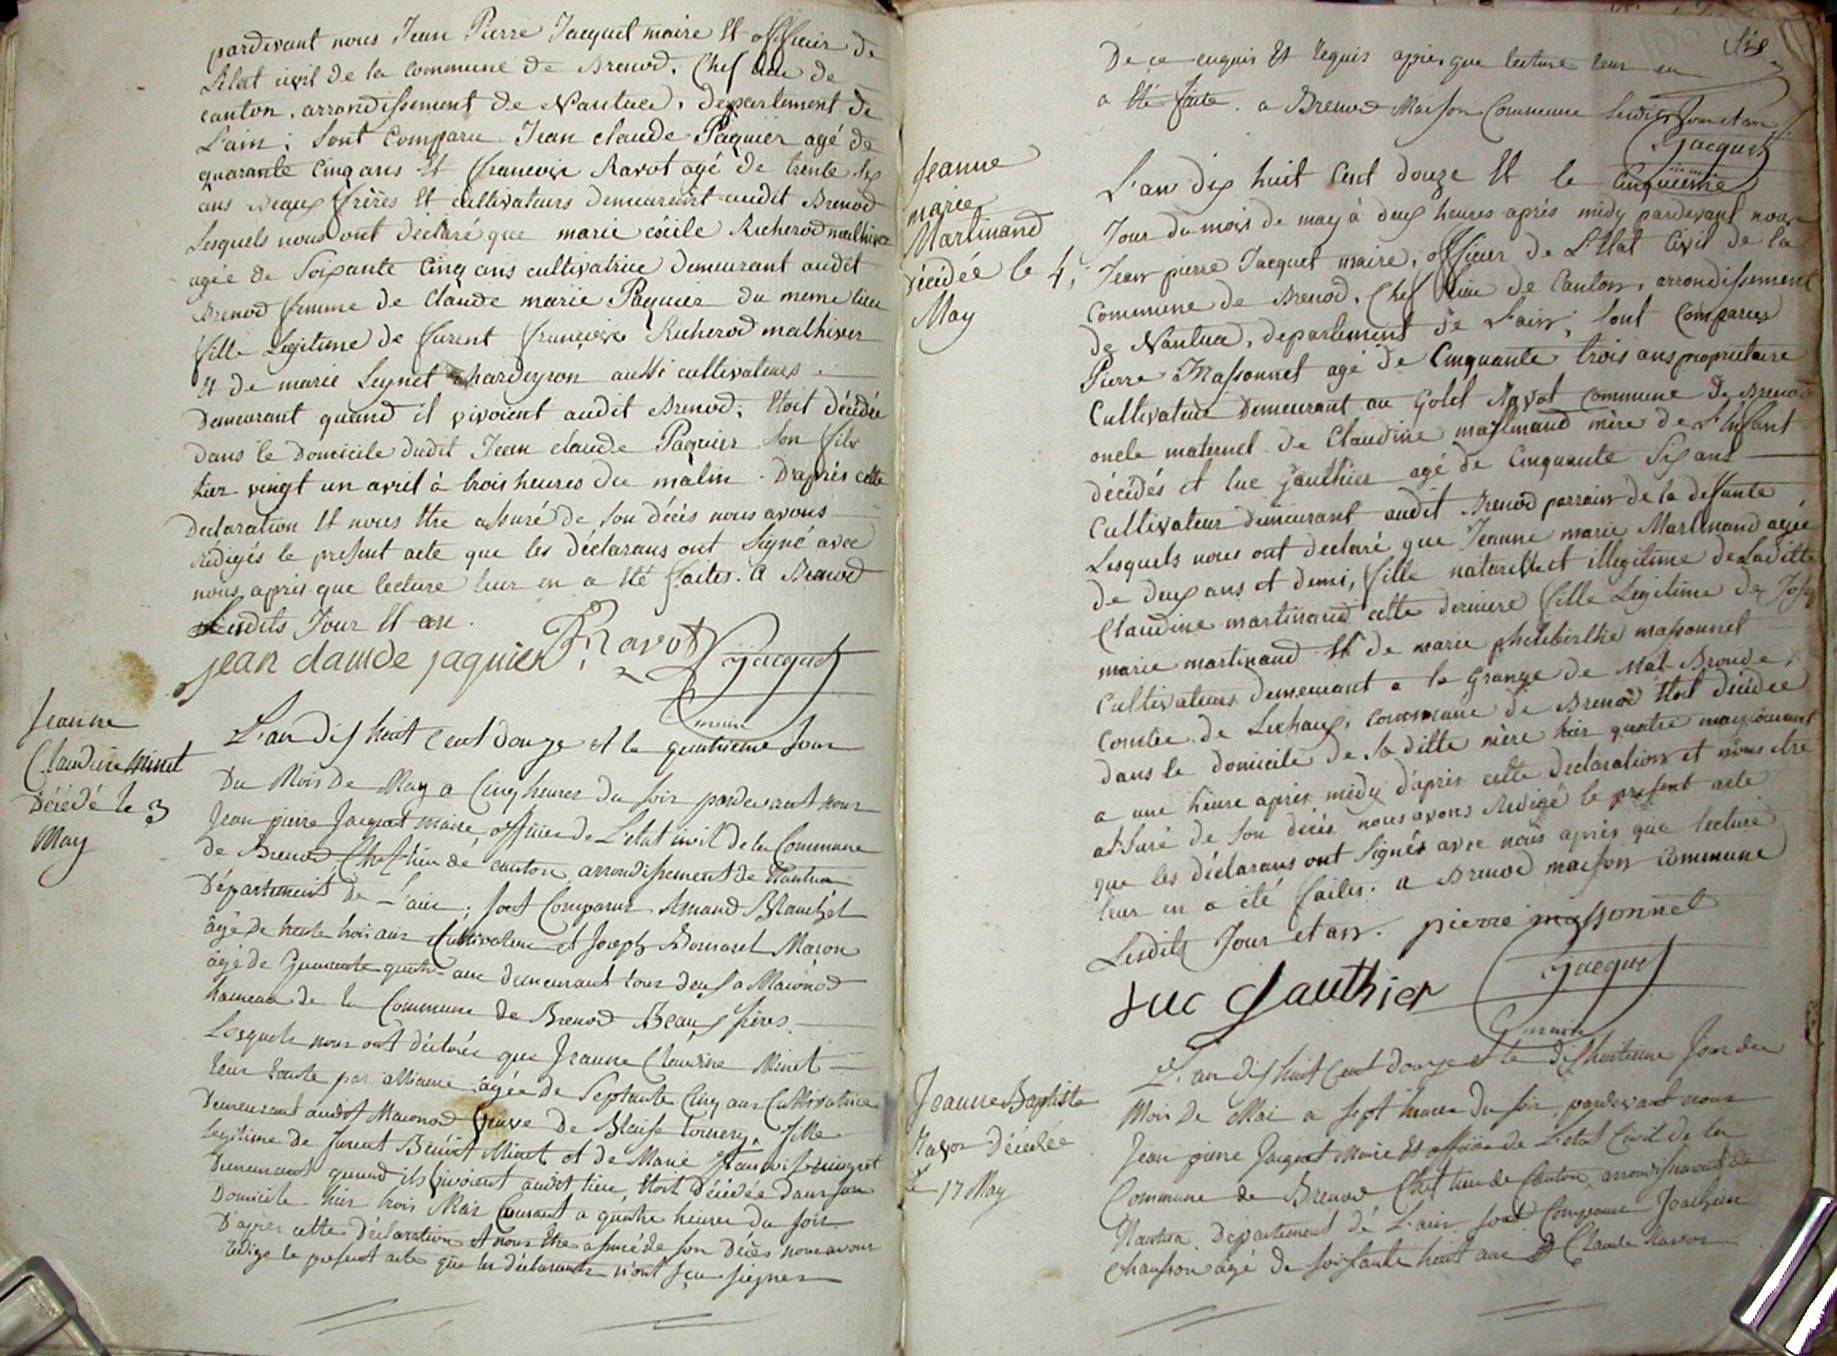 pardevant nous Jean Pierre Jacquet maire Et officier de
L'Etat civil de la commune de Brenod, Chef lieu de
canton, arrondissement de Nantua, département de
L'ain ; Sont Comparu Jean claude Paquier agé de
quarante Cinq ans Et françois Ravot agé de trente six
ans Beaux frères Et cultivateurs demeurant audit Brenod
Lesquels nous ont déclaré que marie cécile Richerod malhiver
agée de Soixante Cinq ans cultivatrice demeurant audit
Brenod femme de Claude marie Paquier du meme lieu
fille Legitime de furent françois Richerod malhiver
Et de marie Leynet chardeyron aussi cultivateurs
Demeurant quand il vivoient audit Brenod, Etoit décédée
dans le Domicile dudit Jean claude Paquier son fils
hier vingt un avril à trois heures du matin. D'après cette
declaration Et nous Etre assuré de son décès nous avons
rédigés le présent acte que les déclarans ont Signé avec
nous après que lecture leur en a Eté faites. a Brenod
Lesdits Jour Et an.
jean claude paquier Ravot Jacquet
maire
Jeanne
Claudine Minet
Décédé le 3
May
L'an dix huit Cent douze et le quatrieme Jour
Du Mois De May a Cinq heures du soir pardevant nous
Jean pierre Jacquet maire, officier de L'etat civil de la Commune
de Brenod Chef lieu de canton, arrondissement de Nantua
Département de L'ain ; sont Comparus Amand Blanchet
âgé de trente trois ans Cultivateur et Joseph Maron
âgé de quarante quatre ans demeurant tous deux a Macônod
hameau de la Commune de Brenod Beaux freres.
Lesquels nous ont déclarés que Jeanne Claudine Minet
leur tante par alliance agée de Septante Cinq ans Cultivatrice
Demeurant audit Maconod veuve de Blaise fille
legitime de furent Benoit Minet et de Marie
Demeurant quand ils vivoient audit lieu, Etoit Décédée dans son
Domicile hier trois Mai Courant a quatre heures du soir
D'après cette déclaration et nous Etre assuré de son décès nous avons
rédigé le présent acte que les déclarants n'ont sçu signer
six
De ce enquis Et requis après que lecture leur en
a Eté faite. a Brenod Maison Commune lesdits Jour et an
Jacquet
maire
Jeanne
marie
Martinand
décédée le 4
May
L'an dix huit Cent douze Et le Cinquieme
Jour du mois de may à deux heures après midy pardevant nous
Jean pierre Jacquet maire, officier de L'Etat Civil de la
Commune de Brenod, Chef lieu de Canton, arrondissement
de Nantua, departement de L'ain ; Sont Comparus
Pierre Massonnet agé de Cinquante trois ans propriétaire
Cultivateur Demeurant au Golet Ravot commune de Brenod
oncle maternel de Claudine martinand mère de L'Enfant
décédés et luc Gauthier agé de Cinquante Six ans
Cultivateur demeurant audit Brenod parrain de la deffunte
Lesquels nous ont declaré que Jeanne marie Martinand agée
de deux ans et demi, fille naturelle et illegitime de Laditte
Claudine martinand cette derniere fille Legitime de Joseph
marie martinand Et de marie philiberthe massonnet
Cultivateurs demeurant a la Grange de
Combe de Lechaux, commune de Brenod Etoit décédée
dans le domicile de sa ditte mère hier quatre may courant
a une heure après midy d'après cette declaration et nous etre
assuré de son décès nous avons rédigé le présent acte
que les déclarans ont Signés avec nous après que lecture
leur en a été faites. a Brenod maison commune
Lesdits Jour et an. pierre massonnet
Luc Gauthier Jacquet
maire
Jeanne Baptiste
Ravot Décédée
le 17 May
L'an dix huit Cent Douze et le dixhuitieme Jour du
Mois De Mai a sept heures du soir, pardevant nous
Jean pierre Jacquet Maire Et officier de L'etat Civil de la
Commune de Brenod Chef lieu de Canton, arrondissement de
Nantua Département de L'ain sont Comparus Joachim
Chanson agé de soixante huit ans Et Claude Ravot